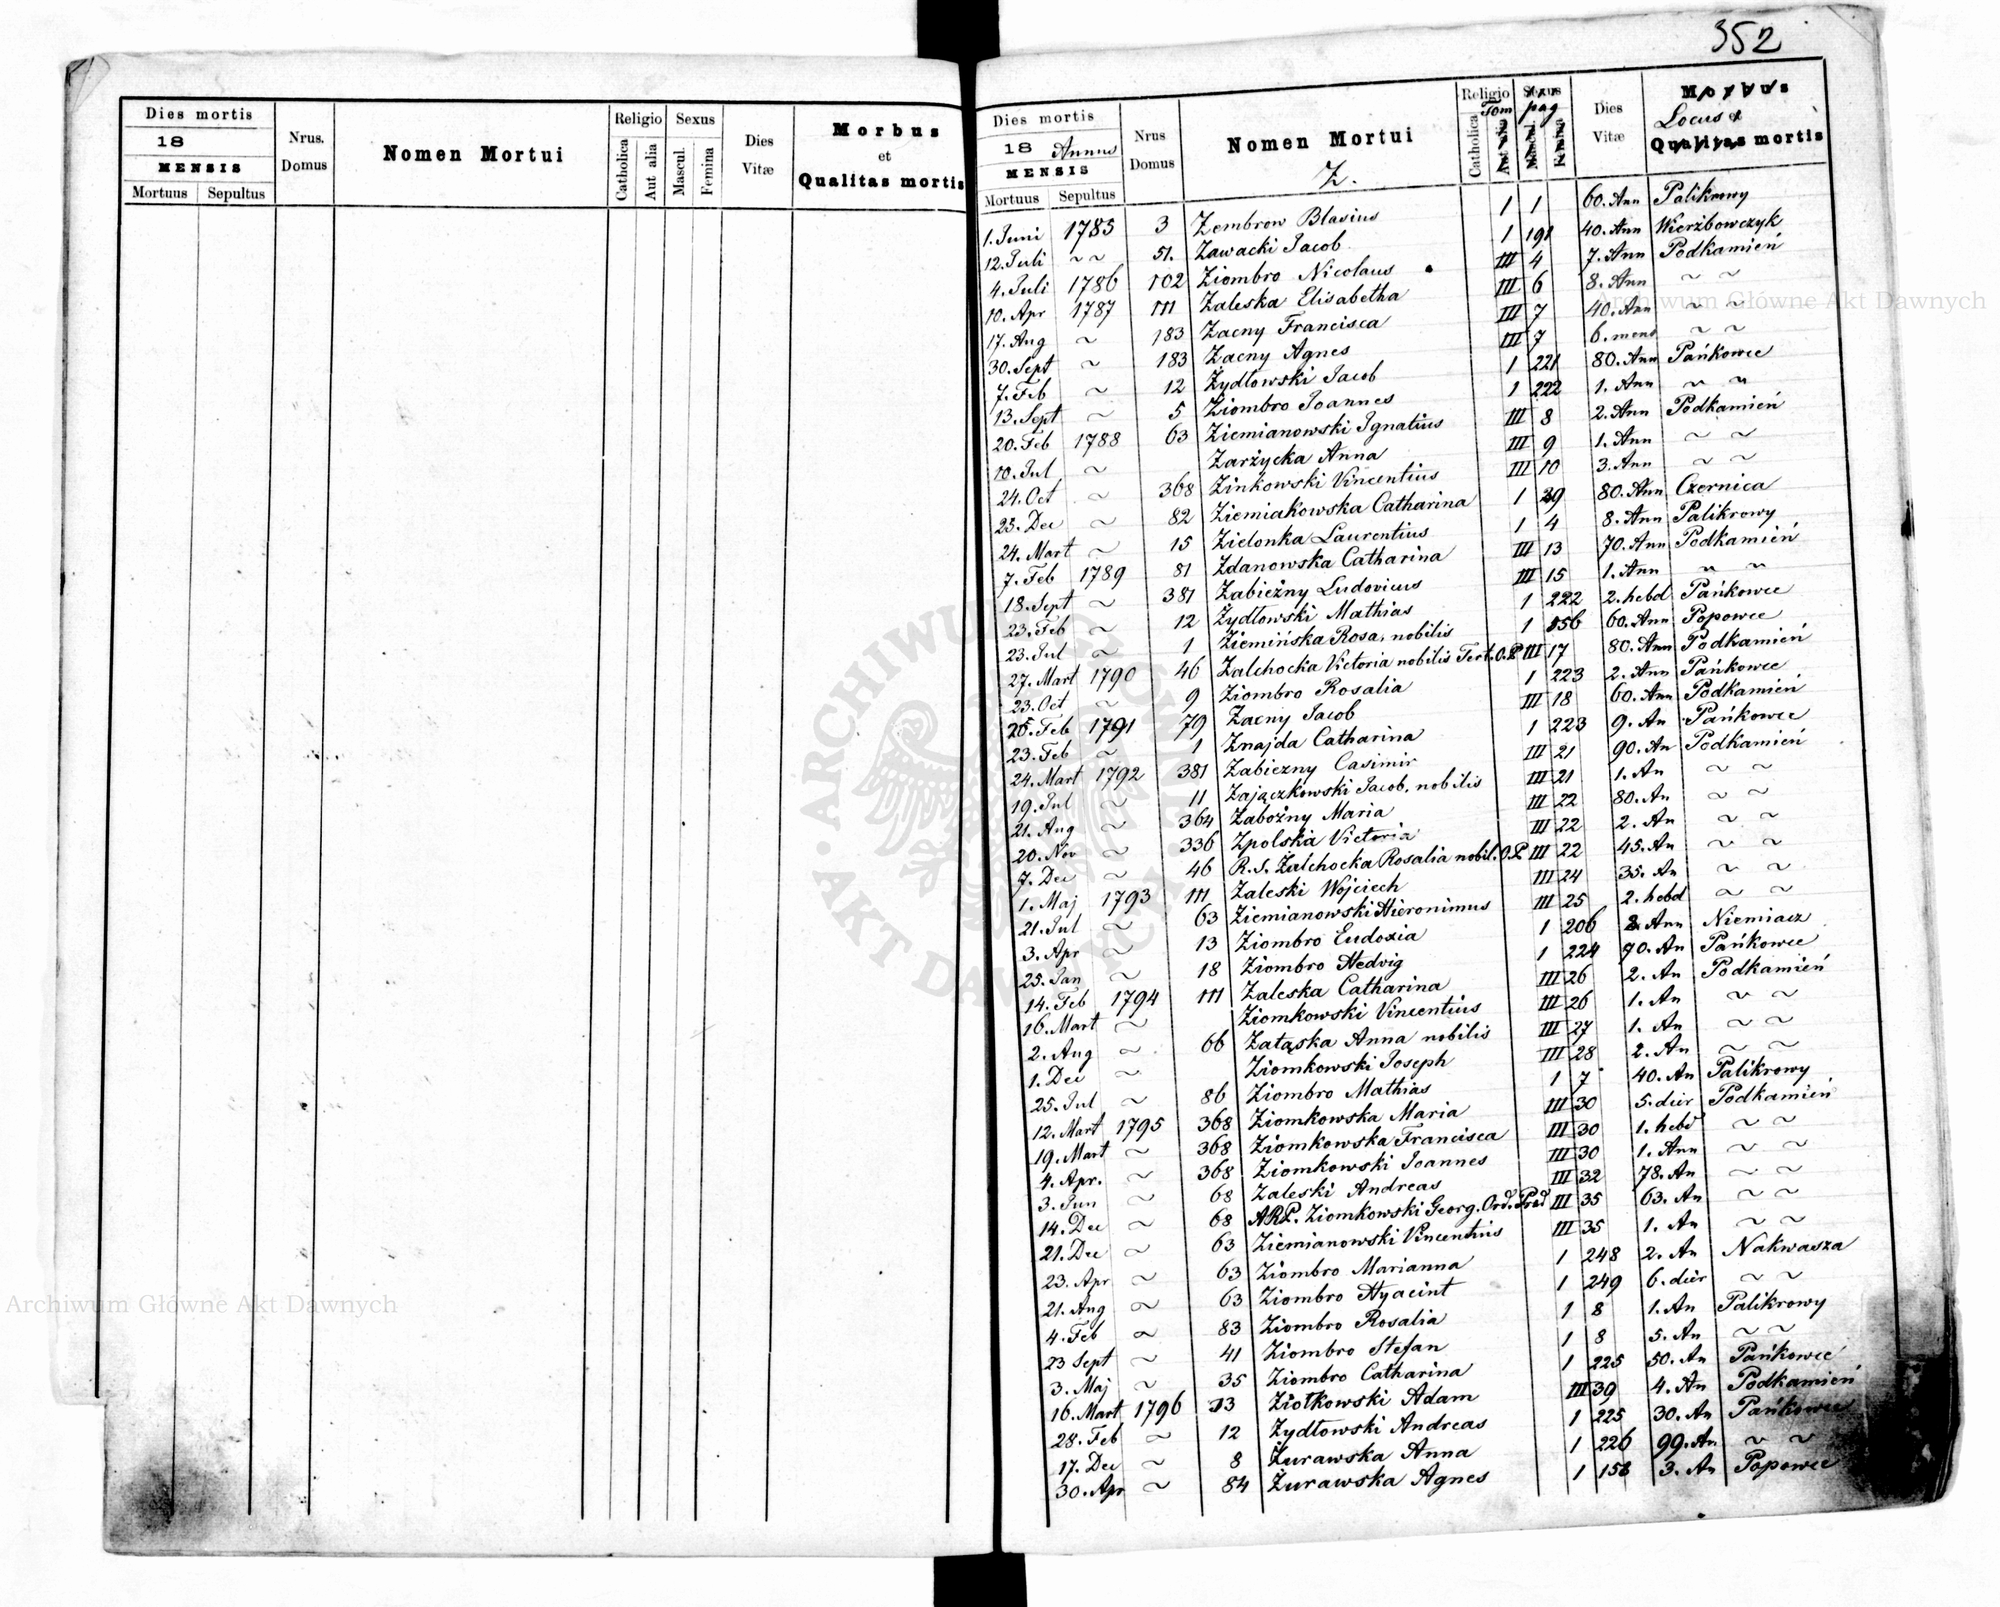 352
Dies mortis
18
MENSIS
Mortuus Sepultus
Nrus. Domus
Nomen Mortui
Religio
Catholica
Aut alia
Sexus
Mascul.
Femina
Dies Vitæ
Morbus
et
Qualitas mortis
Dies mortis
18 Annus
MENSIS
Mortuus Sepultus
Nrus Domus
Nomen Mortui
Z.
Religio Tom
Catholica
Aut alia
Sexus pag
Mascul.
Femina
Dies Vitæ
Morbus
Locus et
Qualitas mortis
1. Juni 1785 3 Zembrow Blasius 1 1 60. Ann Palikrowy
12. Juli ~ ~ 51. Zawacki Jacob 1 191 40. Ann Wierzbowczyk
4. Juli 1786 102 Ziombro Nicolaus III 4 7. Ann Podkamień
10. Apr 1787 111 Zaleska Elisabetha III 6 8. Ann ~ ~
17. Aug ~ 183 Zacny Francisca III 7 40. Ann ~ ~
30. Sept ~ 183 Zacny Agnes III 7 6. mens ~ ~
7. Feb ~ 12 Żydłowski Jacob 1 221 80. Ann Pańkowce
13. Sept ~ 5 Ziombro Joannes 1 222 1. Ann ~ ~
20. Feb 1788 63 Ziemianowski Ignatius III 8 2. Ann Podkamień
10. Jul ~ Zarżycka Anna III 9 1. Ann ~ ~
24. Oct ~ 368 Zinkowski Vincentius III 10 3. Ann ~ ~
25. Dec ~ 82 Ziemiakowska Catharina 1 29 80. Ann Czernica
24. Mart ~ 15 Zielonka Laurentius 1 4 8. Ann Palikrowy
7. Feb 1789 81 Zdanowska Catharina III 13 70. Ann Podkamień
18. Sept ~ 381 Zabieżny Ludovicus III 15 1. Ann ~ ~
23. Feb ~ 12 Żydłowski Mathias 1 222 2. hebd Pańkowce
23. Jul ~ 1 Ziemińska Rosa, nobilis 1 156 60. Ann Popowce
27. Mart 1790 46 Zalchocka Victoria nobilis Tert. O.P. III 17 80. Ann Podkamień
23. Oct ~ 9 Ziombro Rosalia 1 223 2. Ann Pańkowce
25. Feb 1791 79 Zacny Jacob III 18 60. Ann Podkamień
23. Feb ~ 1 Znajda Catharina 1 223 9. An Pańkowce
24. Mart 1792 381 Zabiezny Casimir III 21 90. An Podkamień
19. Jul ~ 11 Zajączkowski Jacob, nobilis III 21 1. An ~ ~
21. Aug ~ 364 Zabożny Maria III 22 80. An ~ ~
20. Nov ~ 336 Zpolska Victoria III 22 2. An ~ ~
7. Dec ~ 46 R. S. Zalchocka Rosalia nobil. O.P. III 22 45. An ~ ~
1. Maj 1793 111 Zaleski Wojciech III 24 35. An ~ ~
21. Jul ~ 63 Ziemianowski Hieronimus III 25 2. hebd ~ ~
3. Apr ~ 13 Ziombro Eudoxia 1 206 Ann Niemiacz
25. Jan ~ 18 Ziombro Hedvig 1 224 70. An Pańkowce
14. Feb 1794 111 Zaleska Catharina III 26 2. An Podkamień
16. Mart ~ Ziomkowski Vincentius III 26 1. An ~ ~
2. Aug ~ 66 Zatąska Anna nobilis III 27 1. An ~ ~
1. Dec ~ Ziomkowski Joseph III 28 2. An ~ ~
25. Jul ~ 86 Ziombro Mathias 1 7 40. An Palikrowy
12. Mart 1795 368 Ziomkowska Maria III 30 5. dier Podkamień
19. Mart ~ 368 Ziomkowska Francisca III 30 1. hebd ~ ~
4. Apr. ~ 368 Ziomkowski Joannes III 30 1. Ann ~ ~
3. Jun ~ 68 Zaleski Andreas III 32 78. An ~ ~
14. Dec ~ 68 A.R.P. Ziomkowski Georg. Ord. Præd III 35 63. An ~ ~
21. Dec ~ 63 Ziemianowski Vincentius III 35 1. An ~ ~
23. Apr ~ 63 Ziombro Marianna 1 248 2. An Nakwasza
21. Aug ~ 63 Ziombro Hyacint 1 249 6. dier ~ ~
4. Feb ~ 83 Ziombro Rosalia 1 8 1. An Palikrowy
23 Sept ~ 41 Ziombro Stefan 1 8 5. An ~ ~
3. Maj ~ 35 Ziombro Catharina 1 225 50. An Pańkowce
16. Mart 1796 33 Ziołkowski Adam III 39 4. An Podkamień
28. Feb ~ 12 Żydłowski Andreas 1 225 30. An Pańkowce
17. Dec ~ 8 Żurawska Anna 1 226 99. An ~ ~
30. Apr ~ 84 Żurawska Agnes 1 158 3. An Popowce
Archiwum Główne Akt Dawnych
Archiwum Główne Akt Dawnych
ARCHIWUM GŁÓWNE AKT DAWNYCH